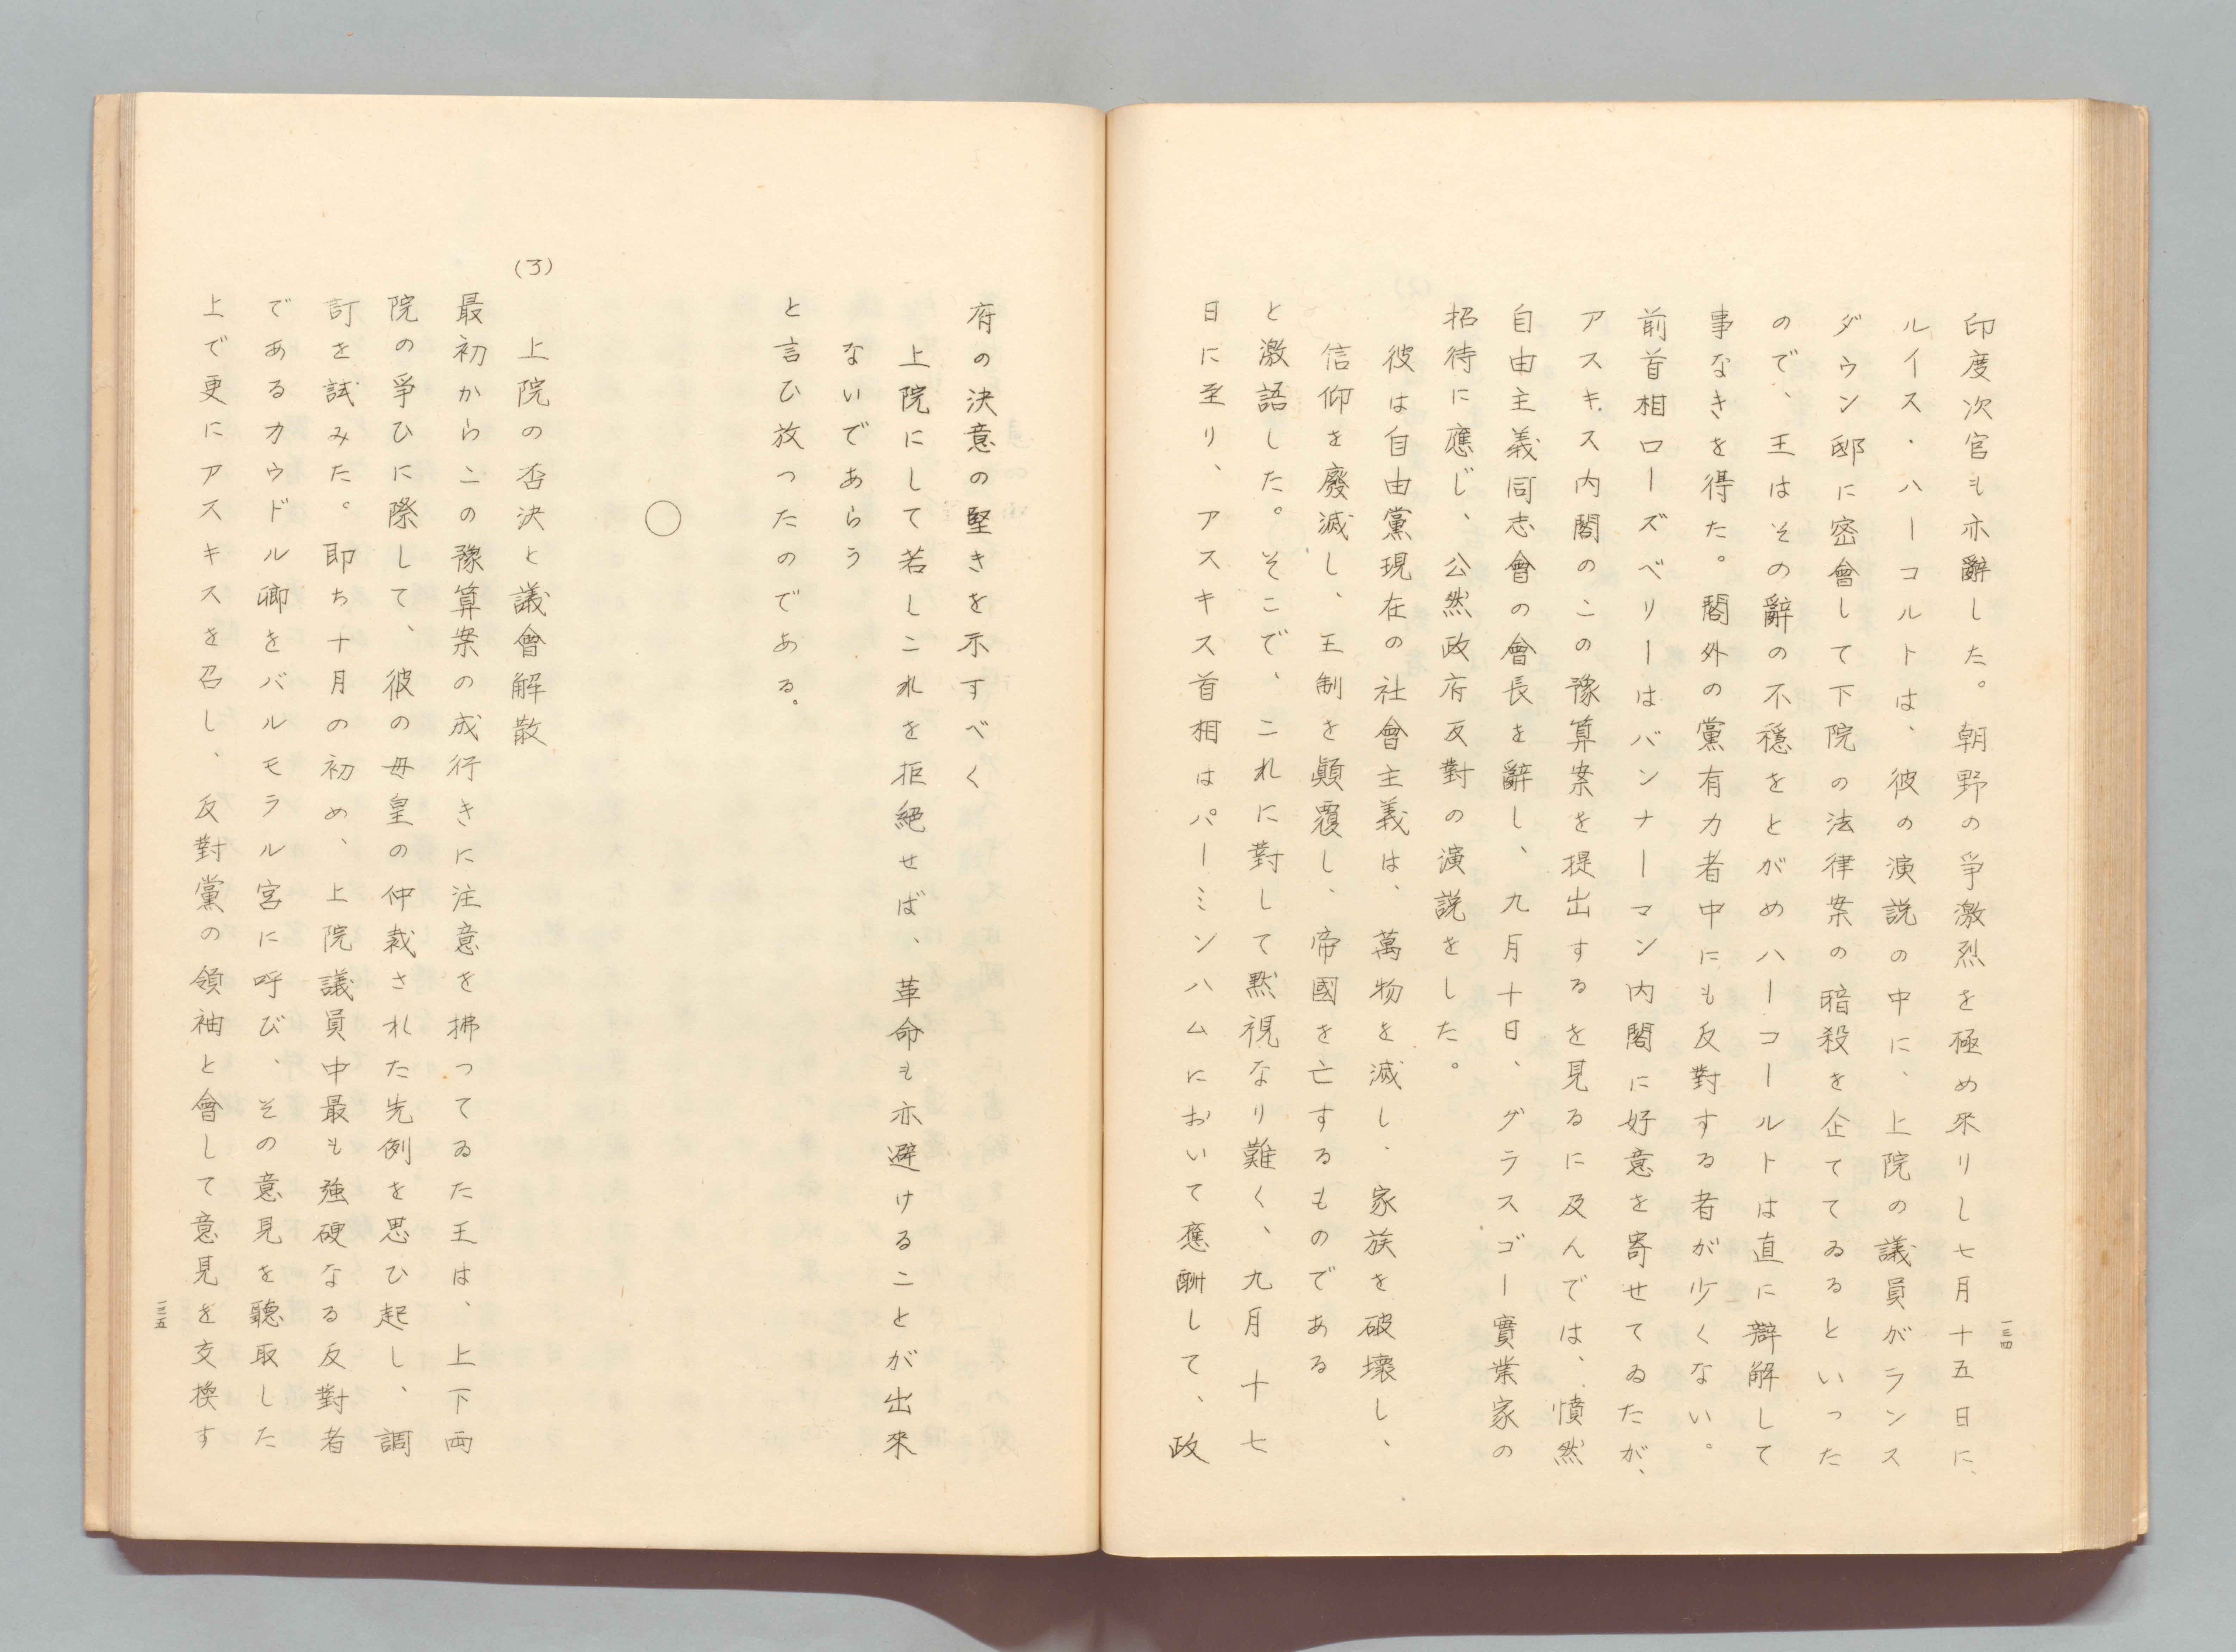 印度次官も亦辭した。朝野の爭激烈を極め來りし七月十五日に、
ルイス・ハーコルトは、彼の演説の中に、上院の議員がランス
ダウン邸に密會して下院の法律案の暗殺を企ててゐるといった
ので、王はその辭の不穩をとがめハーコールトは直に辯解して
事なきを得た。閣外の黨有力者中にも反對する者が少くない。
前首相ローズベリーはバンナーマン内閣に好意を寄せてゐたが、
アスキス内閣のこの豫算案を提出するを見るに及んでは、憤然
自由主義同志會の會長を辭し、九月十日、グラスゴー實業家の
招待に應じ、公然政府反對の演説をした。
彼は自由黨現在の社會主義は、萬物を滅し、家族を破壞し、
信仰を廢滅し、王制を顚覆し、帝國を亡するものである
と激語した。そこで、これに對して黙視なり難く、九月十七
日に至り、アスキス首相はパーミンハムにおいて應酬して、政
一三四
府の決意の堅きを示すべく
上院にして若しこれを拒絶せば、革命も亦避けることが出來
ないであらう
と言ひ放ったのである。
○
(3) 上院の否決と議會解散
最初からこの豫算案の成行きに注意を拂ってゐた王は、上下両
院の爭ひに際して、彼の母皇の仲裁された先例を思ひ起し、調
訂を試みた。即ち十月の初め、上院議員中最も強硬なる反對者
であるカウドル卿をバルモラル宮に呼び、その意見を聽取した
上で更にアスキスを召し、反對黨の領袖と會して意見を交換す
一三五